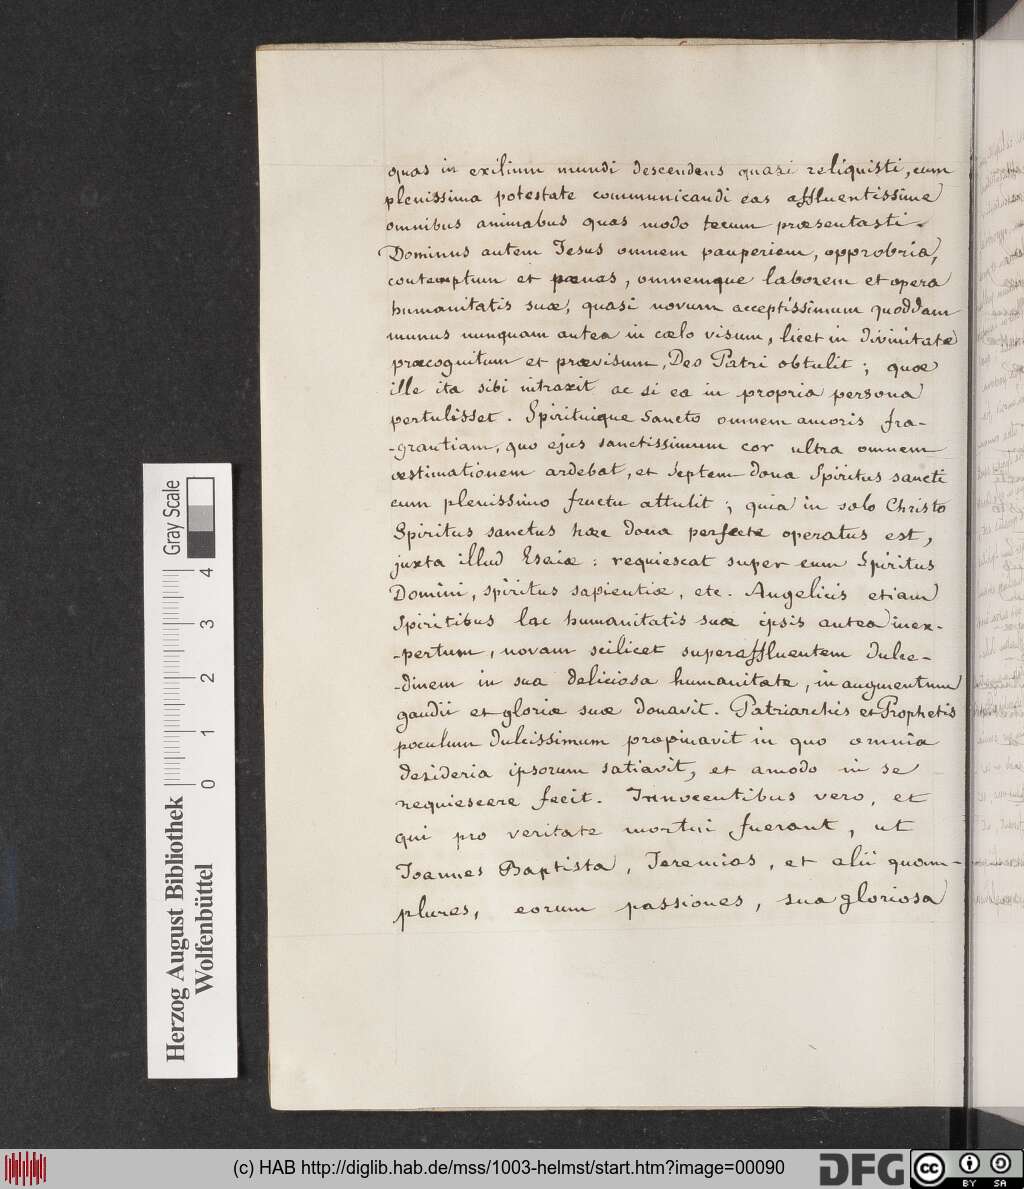 quas in exilium mundi descendens quasi reliquisti, cum
plenissima potestate communicandi eas affluentissime
omnibus animabus quas modo tecum præsentasti.
Dominus autem Jesus omnem pauperiem, opprobria,
contemptum et pœnas, omnemque laborem et opera
humanitatis suæ, quasi novum acceptissimum quoddam
munus nunquam antea in cœlo visum, licet in divinitate
præcognitum et prævisum, Deo Patri obtulit ; quæ
ille ita sibi intraxit ac si ea in propria persona
pertulisset. Spirituique Sancto omnem amoris fra-
-grantiam, quo ejus sanctissimum cor ultra omnem
æstimationem ardebat, et Septem dona Spiritus sancti
cum plenissimo fructu attulit ; quia in solo Christo
Spiritus sanctus hæc dona perfecte operatus est,
juxta illud Esaiæ : requiescat super eum Spiritus
Domini, spiritus sapientiæ, etc. Angelicis etiam
Spiritibus lac humanitatis suæ ipsis antea inex-
-pertum, novam scilicet superaffluentem dulce-
-dinem in sua deliciosa humanitate, in augmentum
gaudii et gloriæ suæ donavit. Patriarchis et Prophetis
poculum dulcissimum propinavit in quo omnia
desideria ipsorum satiavit, et amodo in se
requiescere fecit. Innocentibus vero, et
qui pro veritate mortui fuerant, ut
Joannes Baptista, Jeremias, et alii quam-
plures, eorum passiones, sua gloriosa
Herzog August Bibliothek
Wolfenbüttel
0 1 2 3 4
Gray Scale
(c) HAB http://diglib.hab.de/mss/1003-helmst/start.htm?image=00090
DFG
cc BY SA